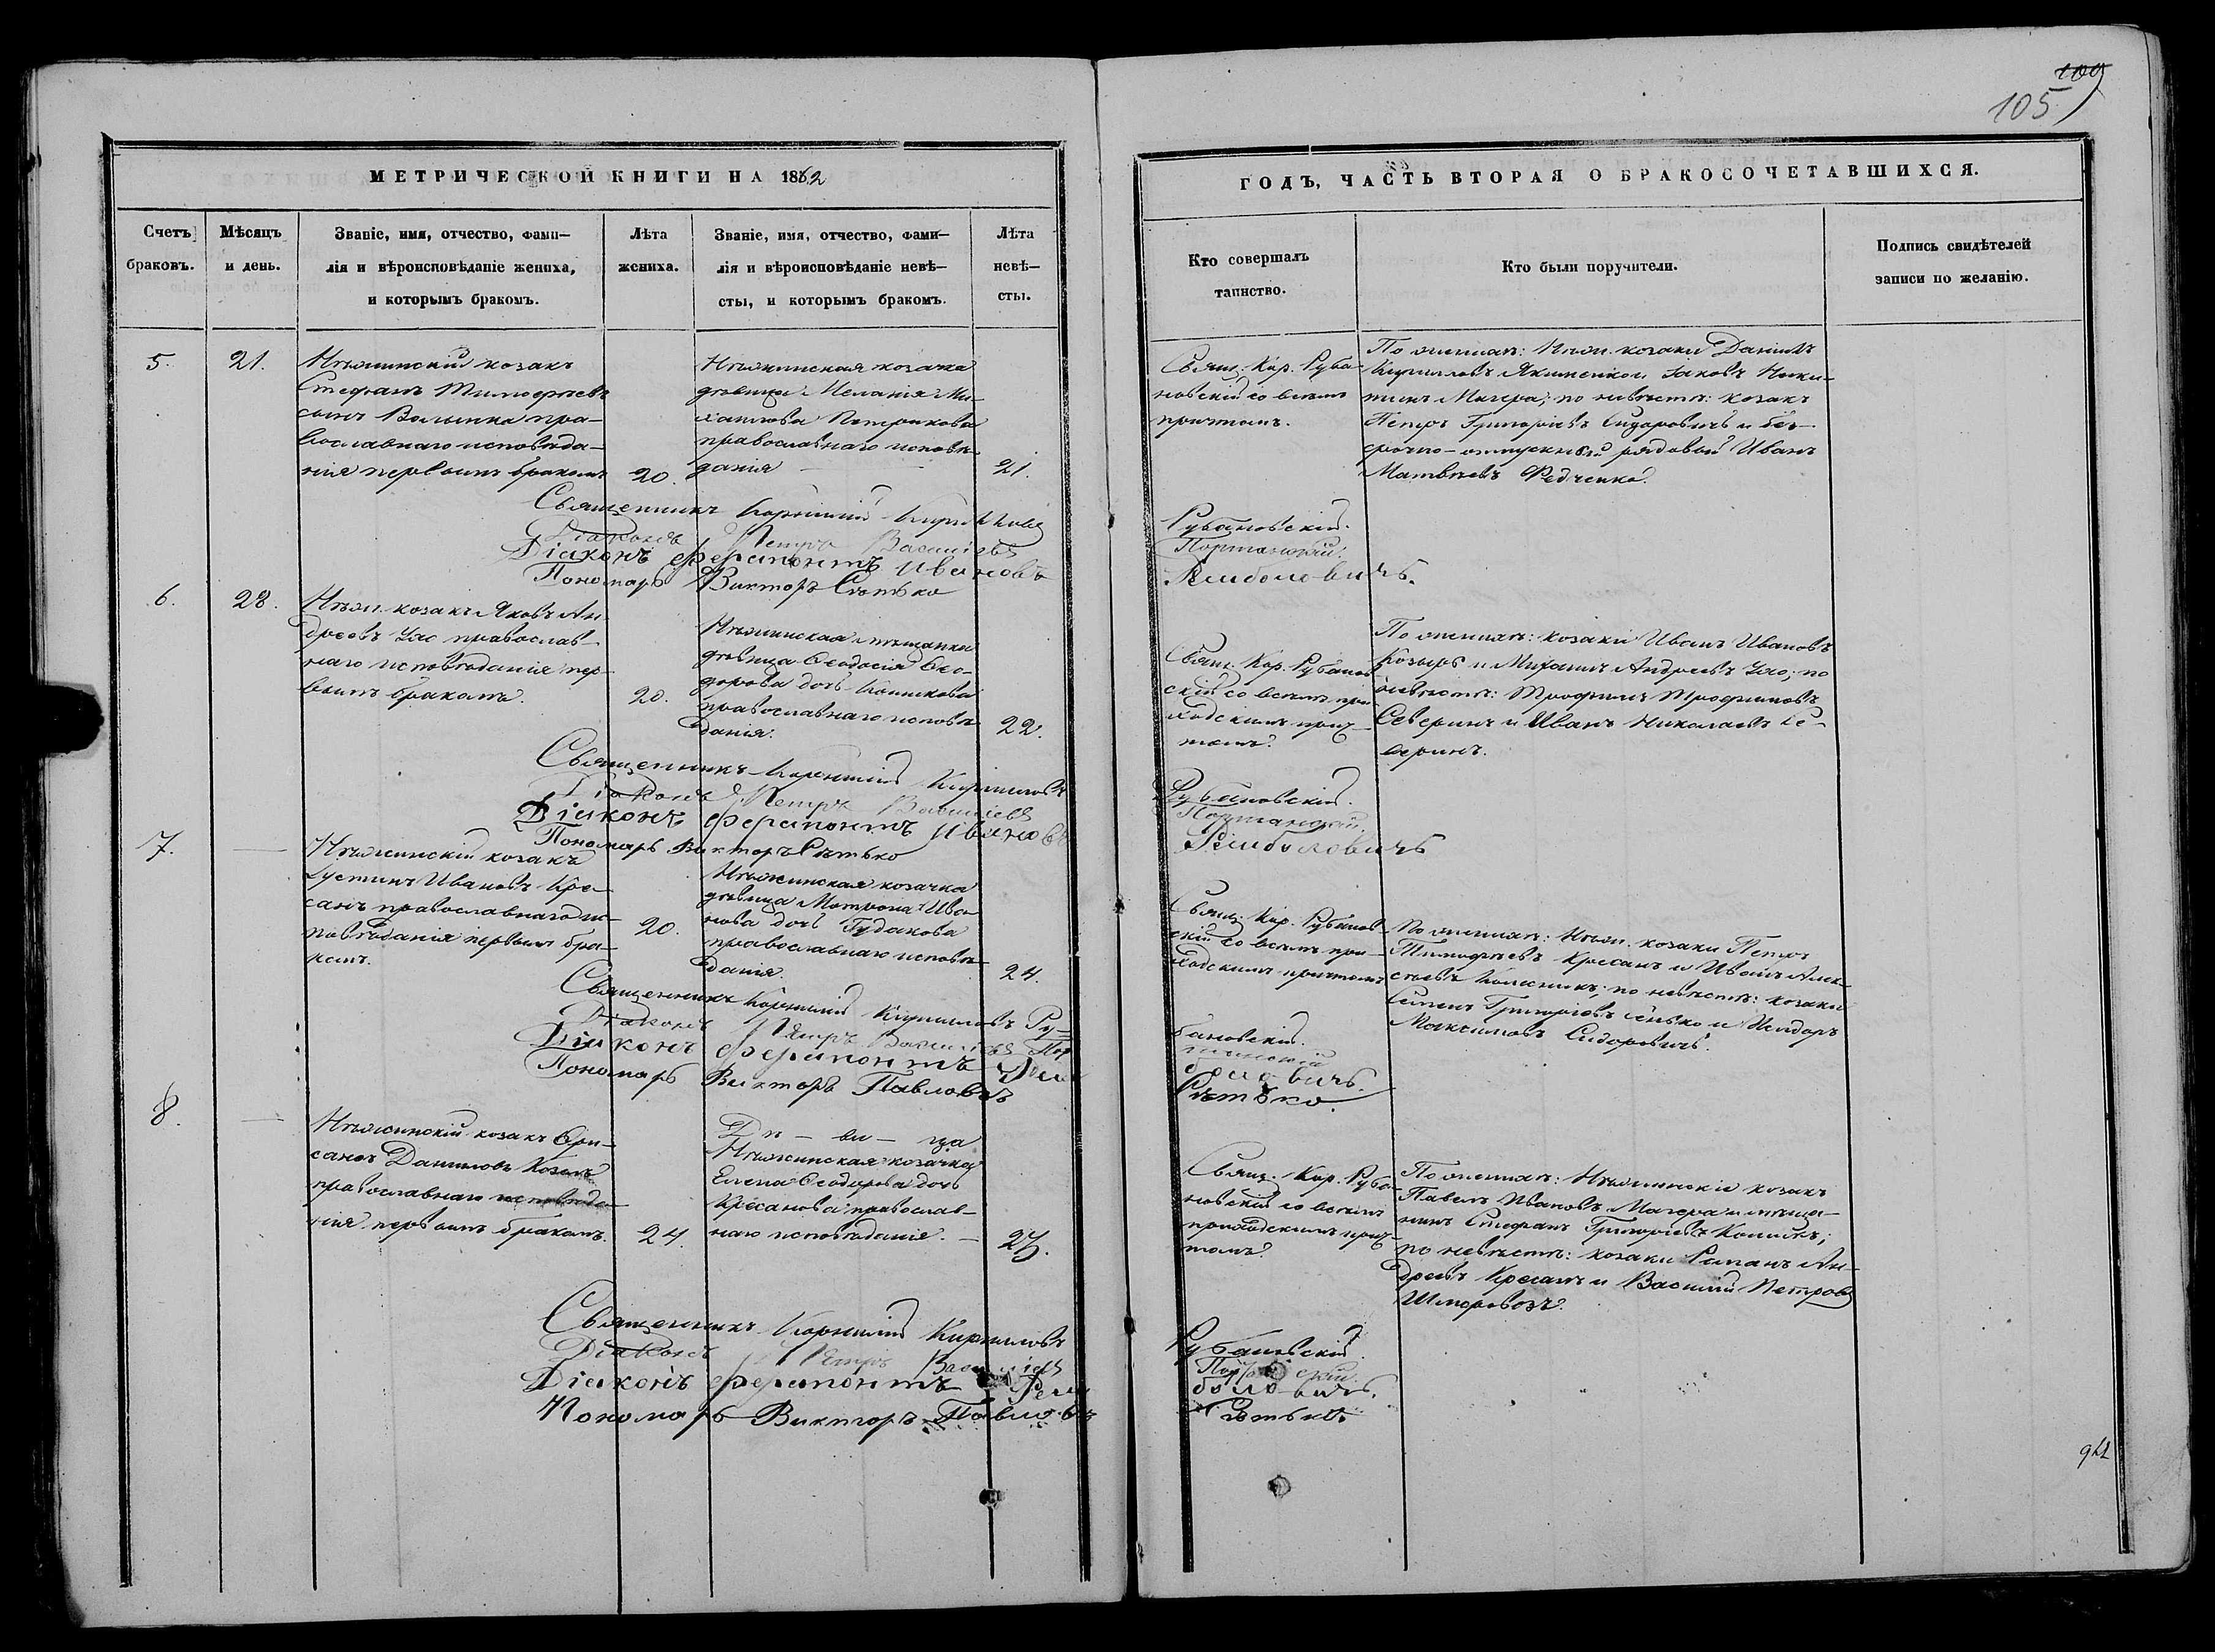 105
МЕТРИЧЕСКОЙ КНИГИ НА 1862
ГОДЪ, ЧАСТЬ ВТОРАЯ О БРАКОСОЧЕТАВШИХСЯ.
Счетъ браковъ.
Мѣсяцъ и день.
Званіе, имя, отчество, фами-
лія и вѣроисповѣданіе жениха,
и которымъ бракомъ.
Лѣта
жениха.
Званіе, имя, отчество, фами-
лія и вѣроисповѣданіе невѣ-
сты, и которымъ бракомъ.
Лѣта
невѣ-
сты.
Кто совершалъ
таинство.
Кто были поручители.
Подпись свидѣтелей
записи по желанію.
5.
21.
Нѣжинскій козакъ
Стефанъ Тимофѣевъ
сынъ Волынка пра-
вославнаго исповѣда-
нія первымъ бракомъ
20.
Нѣжинская козачка
дѣвица Меланія Ми-
хаилова Петрикова
православнаго исповѣ-
данія
21.
Свящ. Кор. Руба-
новскій со всѣмъ
причтомъ.
По женихѣ: Нѣжин. козаки Даніилъ
Кирилловъ Якименко и Іаковъ Ники-
тинъ Магера; по невѣстѣ: козакъ
Петръ Григоріевъ Сидоровичъ и без-
срочно-отпускной рядовый Иванъ
Матвѣевъ Федченко.
Священникъ Корнилій Кирилловъ Рубановскій.
Діаконъ Петръ Василіевъ
Діаконъ Ферапонтъ Ивановъ Рымболовичъ.
Пономарь Викторъ Сѣтько
6.
28.
Нѣжин. козакъ Яковъ Ан-
дреевъ Усо православ-
наго исповѣданія пер-
вымъ бракомъ.
20.
Нѣжинская мѣщанка
дѣвица Ѳеодосія Ѳео-
дорова дочь Конискова
православнаго исповѣ-
данія.
22.
Свящ. Кор. Рубанов-
скій со всѣмъ при-
ходскимъ прич-
томъ.
По женихѣ: козаки Иванъ Ивановъ
Козырь и Михаилъ Андреевъ Усо; по
невѣстѣ: Трофимъ Трофимовъ
Северинъ и Иванъ Николаевъ Се-
веринъ.
Священникъ Корнилій Кирилловъ Рубановскій.
Діаконъ Петръ Василіевъ
Діаконъ Ферапонтъ Ивановъ Рымболовичъ
Пономарь Викторъ Сѣтько
7.
Нѣжинскій козакъ
Іустинъ Ивановъ Кре-
санъ православнаго ис-
повѣданія первымъ бра-
комъ.
20.
Нѣжинская козачка
дѣвица Матрона Ива-
нова дочь Гудакова
православнаго исповѣ-
данія.
24.
Свящ. Кор. Рубанов-
скій со всѣмъ при-
ходскимъ причтомъ
По женихѣ: Нѣжин. козаки Петръ
Тимофѣевъ Кресанъ и Иванъ Алек-
сѣевъ Колесникъ; по невѣстѣ: козаки
Семенъ Григоріевъ Сенько и Исидоръ
Максимовъ Сидоровичъ.
Священникъ Корнилій Кирилловъ Ру-
бановскій.
Діаконъ Петръ Василіевъ
Діаконъ Ферапонтъ Рым
боловичъ.
Пономарь Викторъ Павловъ
Сѣтько.
8.
Нѣжинскій козакъ Хри-
санѳъ Даниловъ Козелъ
православнаго исповѣда-
нія первымъ бракомъ.
24.
Дѣ - ви - ца
Нѣжинская козачка
Елена Ѳеодорова дочь
Кресанова православ-
наго исповѣданія. -
23.
Свящ. Кор. Руба-
новскій со всѣмъ
приходскимъ прич-
томъ.
По женихѣ: Нѣжинскіе козакъ
Павелъ Ивановъ Магера и мѣща-
нинъ Стефанъ Григоріевъ
по невѣстѣ: козаки Романъ Ан-
дреевъ Кресанъ и Василій Петровъ
Священникъ Корнилій Кирилловъ Рубановскій.
Діаконъ Петръ Василіевъ
Діаконъ Ферапонтъ Рым
боловичъ.
Пономарь Викторъ Павловъ
Сѣтько.